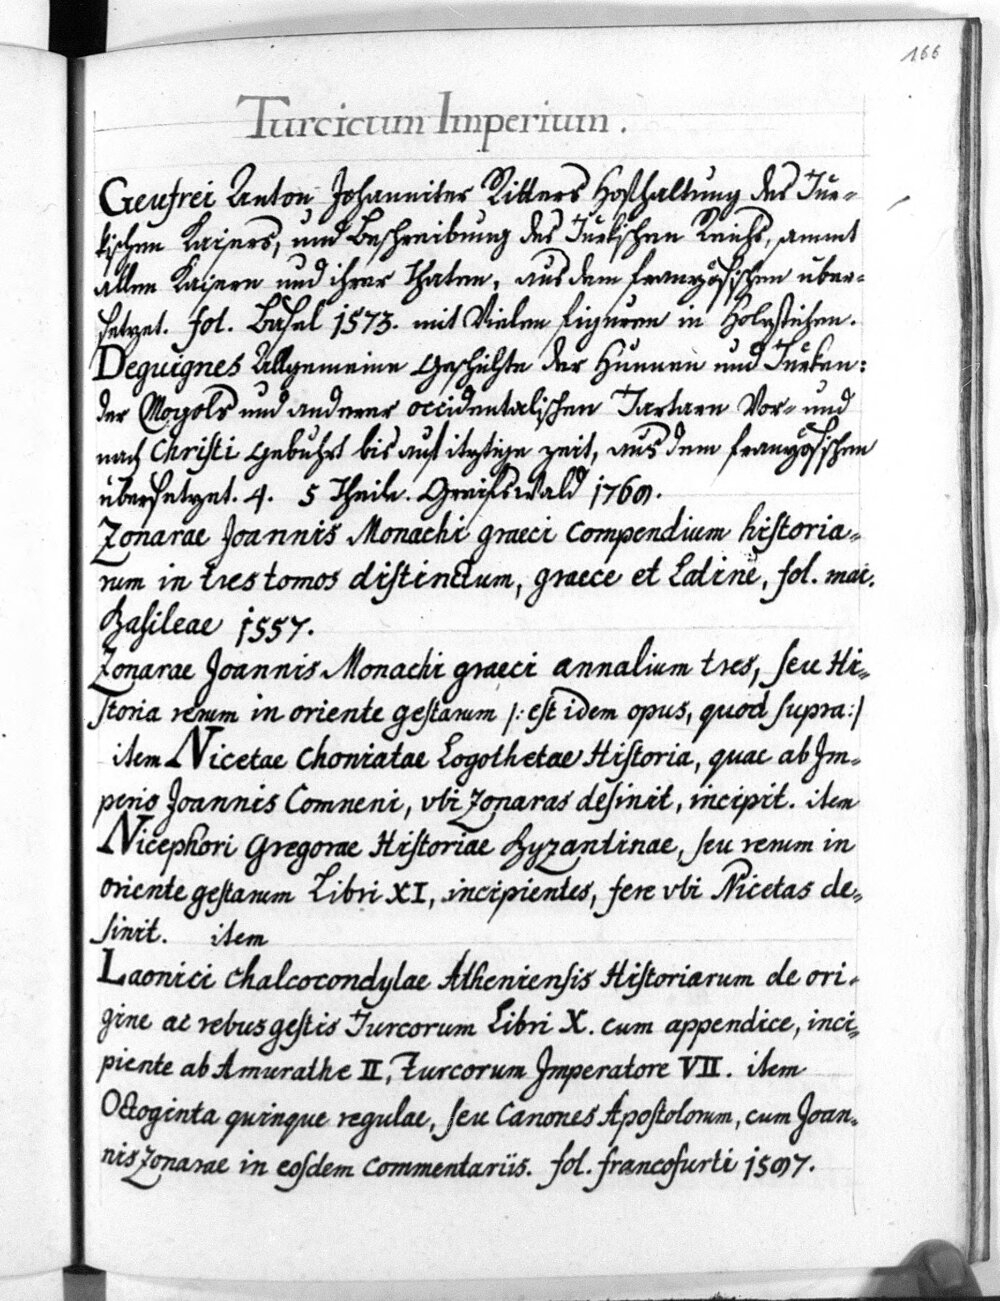 166
Turcicum Imperium.
Geufrei Anton Johanniter Ritters Hofhaltung des Tür-
kischen Kaisers, und Beschreibung des Türkischen Reichs, sammt
allen Kaisern und ihrer Thaten, aus dem französischen über-
setzet. fol. Basel 1573. mit Vielen figuren in Holzstichen.
Deguignes Allgemeine Geschichte der Hunnen und Türken:
der Mogols und anderer occidentalischen Tartarn Vor- und
nach Christi Gebuhrt bis auf itztige zeit, aus dem französischen
übersetzet. 4. 5 Theile. Greifswald 1769.
Zonarae Joannis Monachi graeci Compendium historia-
rum in tres tomos distinctum, graece et Latine, fol. mai.
Basileae 1557.
Zonarae Joannis Monachi graeci annalium tres, seu Hi-
storia rerum in oriente gestarum /: est idem opus, quod supra:/
item Nicetae Choniatae Logothetae Historia, quae ab Im-
perio Joannis Comneni, vbi Zonaras desinit, incipit. item
Nicephori Gregorae Historiae Byzantinae, seu rerum in
oriente gestarum Libri XI, incipientes, fere vbi Nicetas de-
sinit. item
Laonici Chalcocondylae Atheniensis Historiarum de ori-
gine ac rebus gestis Turcorum Libri X. cum appendice, inci-
piente ab Amurathe II, Turcorum Imperatore VII. item
Octoginta quinque regulae, seu Canones Apostolorum, cum Joan-
nis Zonarae in eosdem Commentariis. fol. francofurti 1597.